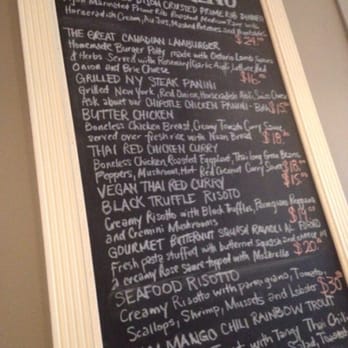 CRUSTED PRIME RIB
Marinated Prime Rib Roasted Medium Rare with
Horseradish Cream, Au Jus, Mashed Potatoes and Vegetables
$24.00
THE GREAT CANADIAN LAMBURGER
Homemade Burger Patty made with Ontario Lamb
& Herbs Served with Rosemary Garlic Aioli, Lettuce Red
Onion and Brie Cheese $16.00
GRILLED NY STEAK PANINI
Grilled New York, Red Onion, Horseradish Aioli, Swiss Cheese
Ask about our CHIPOTLE CHICKEN PANINI - $15
BUTTER CHICKEN
Boneless Chicken Breast, Creamy Tomato Curry Sauce
served over fresh rice with Naan Bread $18.00
THAI RED CHICKEN CURRY
Boneless Chicken, Roasted Eggplant, Thai long Green Beans
Peppers, Mushroom, Hot Red Coconut Curry Sauce $18.00
VEGAN THAI RED CURRY $15.00
BLACK TRUFFLE RISOTO
Creamy Risotto with Black Truffles, Parmigiano Reggiano
and Cremini Mushrooms $19.00
GOURMET BUTTERNUT SQUASH RAVIOLI AL FORNO
Fresh pasta stuffed with butternut squash and
a creamy Rose sauce topped with $20.00
SEAFOOD RISOTTO
Creamy Risotto with parmigiano, Tomato,
Scallops, Shrimp, Mussels and Lobster $30
MANGO CHILI RAINBOW TROUT
with Tangy Thai Chili